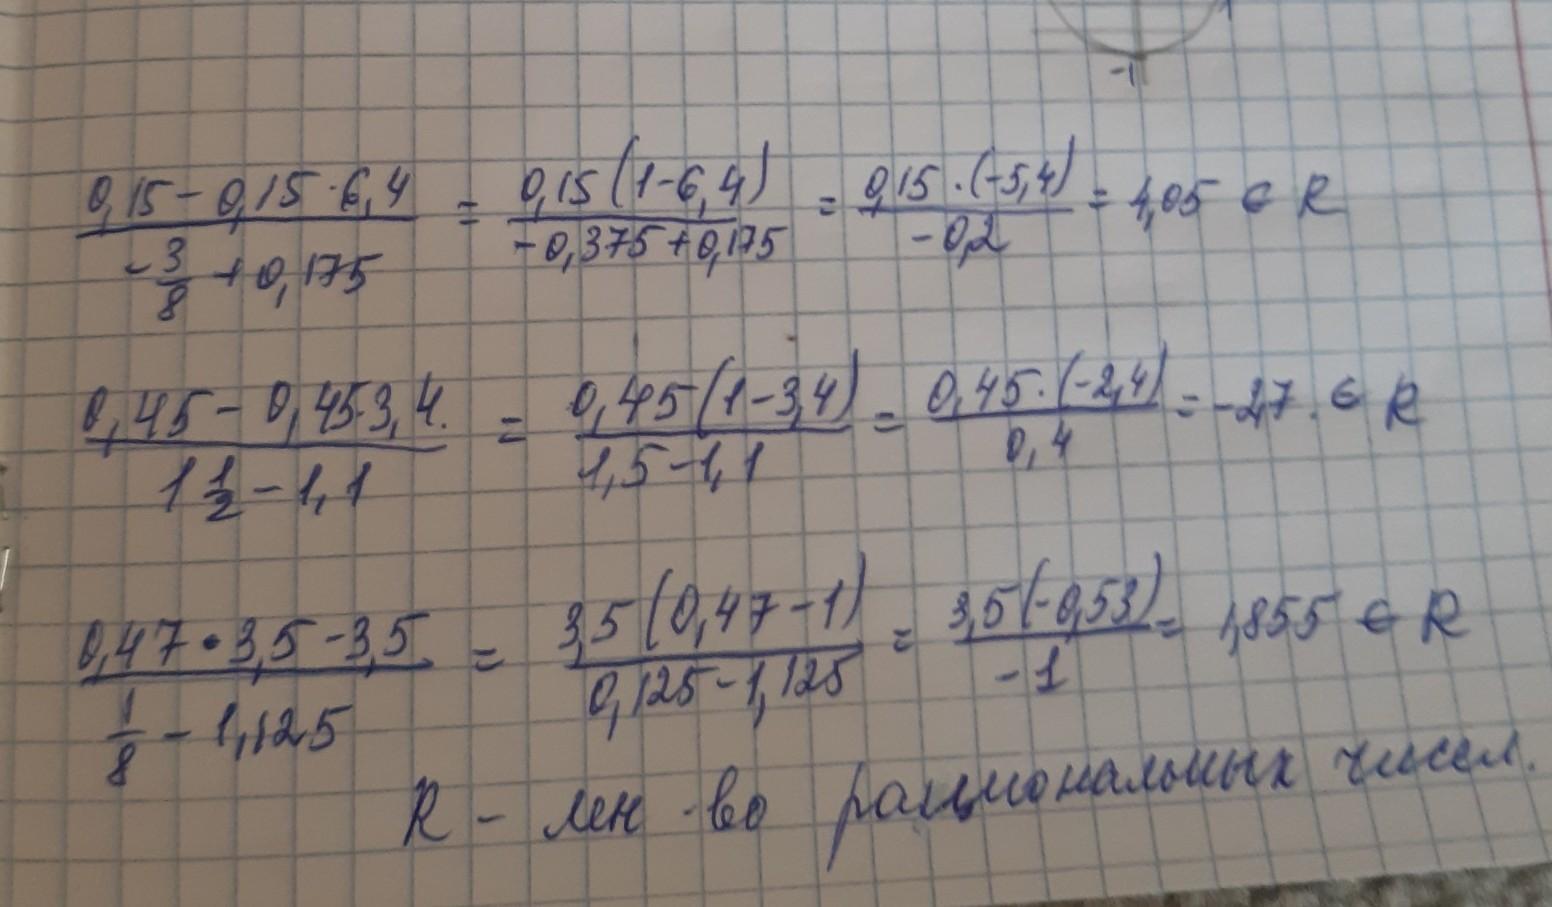 -1
(0,15 - 0,15 · 6,4) / (-3/8 + 0,175) = 0,15(1-6,4) / (-0,375+0,175) = 0,15·(-5,4) / -0,2 = 4,05 ∈ R
(0,45 - 0,45·3,4.) / (1 1/2 - 1,1) = 0,45(1-3,4) / (1,5-1,1) = 0,45·(-2,4) / 0,4 = -2,7. ∈ R
(0,47 · 3,5 - 3,5) / (1/8 - 1,125) = 3,5(0,47-1) / (0,125-1,125) = 3,5(-0,53) / -1 = 1,855 ∈ R
R - мн-во рациональных чисел.